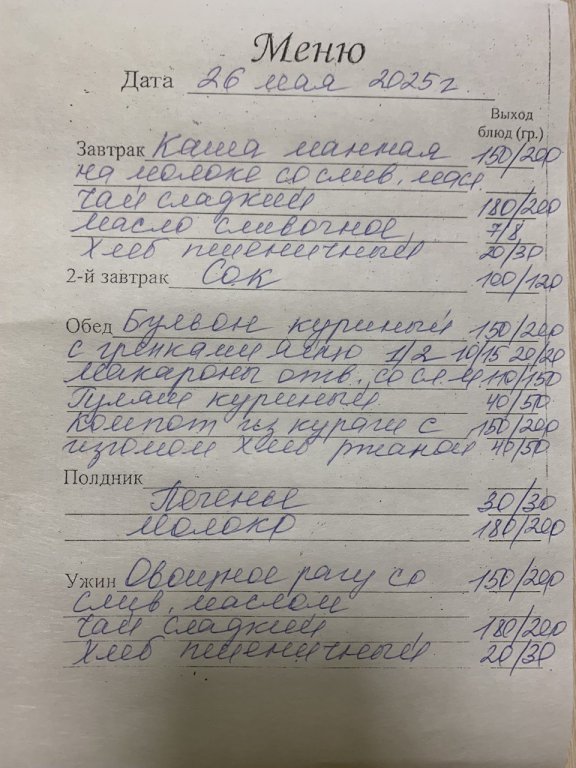 Меню
Дата 26 мая 2025 г
Выход
блюд (гр.)
Завтрак Каша манная 150/200
на молоке со слив. масл
чай сладкий 180/200
масло сливочное 7/8
хлеб пшеничный 20/30
2-й завтрак Сок 100/120
Обед Бульон куриный 150/200
с гренками яйцо 1/2 10/15 20/20
макароны отв. со сл. м 110/150
Гуляш куриный 40/50
компот из кураги с 150/200
изюмом хлеб ржаной 40/50
Полдник
Печенье 30/30
молоко 180/200
Ужин Овощное рагу со 150/200
слив. маслом
чай сладкий 180/200
хлеб пшеничный 20/30